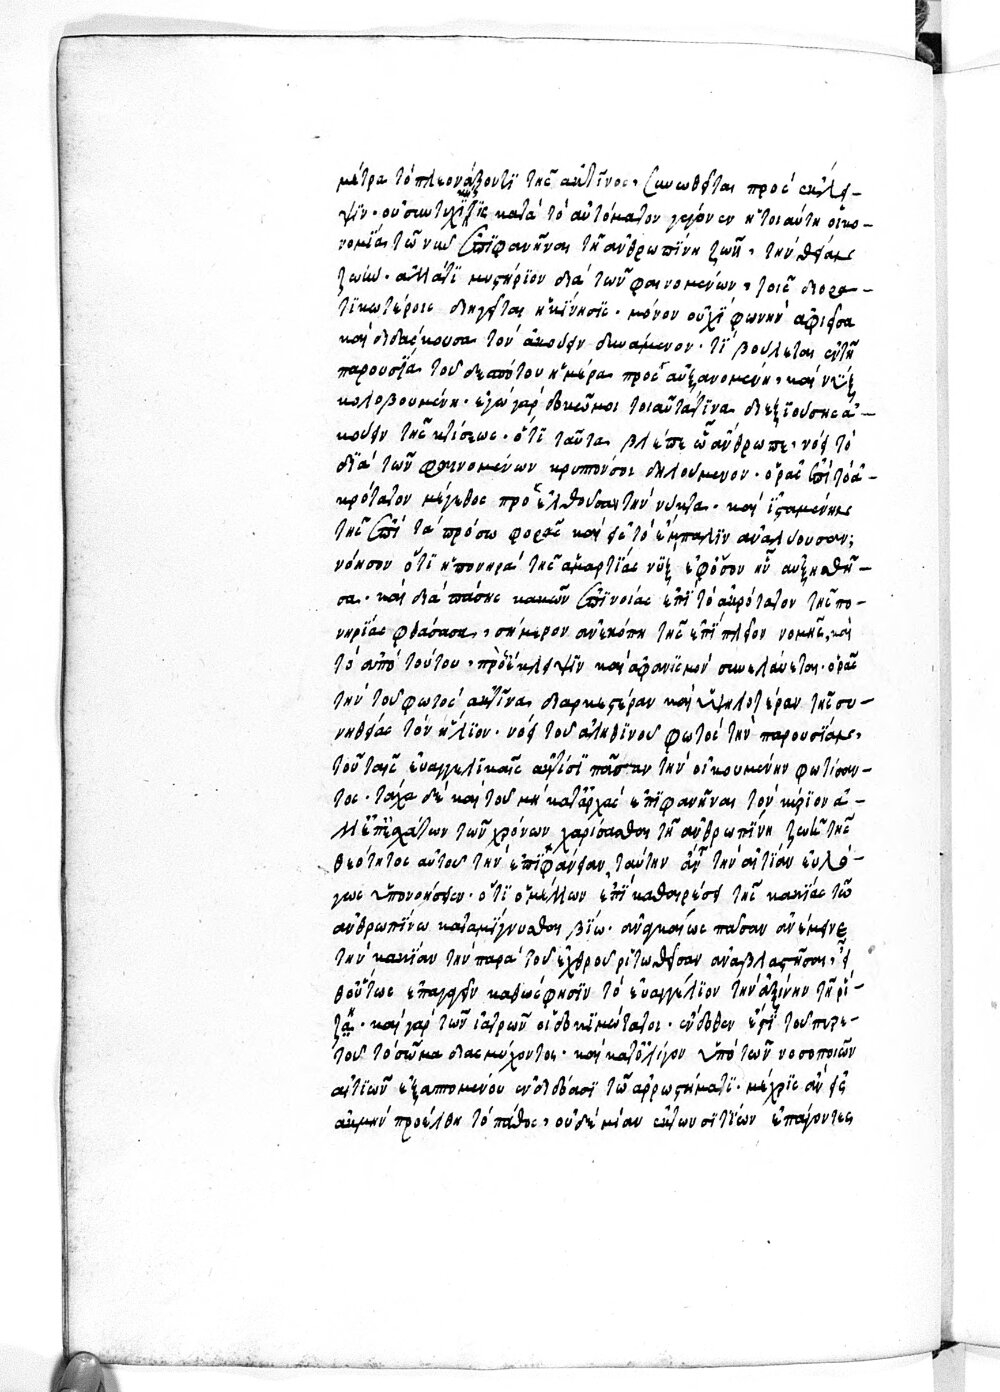 μέτρα τὸ πλεονάζοντι τῆς ἀκτῖνος, συνωθεῖται πρὸς ἔκλει-
ψιν. οὐ συντυχίᾳ τὶς κατὰ τὸ αὐτόματον γέγονεν ἡ τοιαύτη οἰκο-
νομία τῶν νῦν ἐπιφανῆναι τῇ ἀνθρωπίνῃ ζωῇ, τὴν θείαν
ζωήν. ἀλλά τι μυστήριον διὰ τῶν φαινομένων, τοῖς διορα-
τικωτέροις διηγεῖται ἡ κτίσις. μόνον οὐχὶ φωνὴν ἀφιεῖσα
καὶ διδάσκουσα τὸν ἀκούειν δυνάμενον. τί βούλεται ἐν τῇ
παρουσίᾳ τοῦ δεσπότου ἡμέρα πρὸς αὐξανομένη, καὶ νὺξ
κολοβουμένη. ἐγὼ γὰρ δοκῶ μοι τοιαῦτά τινα διεξιούσης ἀ-
κούειν τῆς κτίσεως. ὅτι ταῦτα βλέπε ὦ ἄνθρωπε, νόει τὸ
διὰ τῶν φαινομένων κρυπόν σοι δηλούμενον. ὁρᾷς ἐπὶ τὸ ἀ-
κρότατον μέγεθος προελθοῦσαν τὴν νύκτα. καὶ ἱσταμένην
τῆς ἐπὶ τὰ πρόσω φορᾶς καὶ εἰς τὸ ἔμπαλιν ἀναλύουσαν;
νόησον ὅτι ἡ πονηρὰ τῆς ἁμαρτίας νὺξ ἐφόσον ἦν αὐξηθῆ-
σα. καὶ διὰ πάσης κακῶν ἐπινοίας ἐπὶ τὸ ἀκρότατον τῆς πο-
νηρίας φθάσασα, σήμερον ἀνεκόπη τῆς ἐπὶ πλεῖον νομῆς, καὶ
τὸ ἀπὸ τούτου, πρὸς ἔκλειψιν καὶ ἀφανισμὸν συνελαύνεται. ὁρᾷς
τὴν τοῦ φωτὸς ἀκτῖνα διαρκεστέραν καὶ ὑψηλοτέραν τῆς συ-
νηθείας τὸν ἥλιον. νόει τοῦ ἀληθινοῦ φωτὸς τὴν παρουσίαν,
τοῦ ταῖς εὐαγγελικαῖς ἀκτῖσι πᾶσαν τὴν οἰκουμένην φωτίσαν-
τος. τάχα δὲ καὶ τοῦ μὴ κατ᾽ ἀρχὰς ἐπιφανῆναι τὸν κύριον ἀ-
λλ᾽ ἐπ᾽ ἐσχάτων τῶν χρόνων χαρίσασθαι τῇ ἀνθρωπίνῃ ζωῇ τῆς
θεότητος αὐτοῦ τὴν ἐπιφάνειαν, ταύτην ἄν τὴν αἰτίαν εὐλό-
γως ὑπονοήσειεν. ὅτι ὁ μέλλων ἐπὶ καθαιρέσει τῆς κακίας τῷ
ἀνθρωπίνῳ καταμίγνυσθαι βίῳ. ἀναγκαίως πᾶσαν ἀνέμεινε
τὴν κακίαν τὴν παρὰ τοῦ ἐχθροῦ ῥιζωθεῖσαν ἀναβλαστῆσαι, εἶ
θ᾽ οὕτως ἐπαγαγεῖν καθώς φησιν τὸ εὐαγγέλιον τὴν ἀξίνην τῇ ῥί-
ζῃ. καὶ γὰρ τῶν ἰατρῶν οἱ δοκιμώτατοι. ἔνδοθεν ἔτι τοῦ πυρε-
τοῦ τὸ σῶμα διασμύχοντος. καὶ κατ᾽ ὀλίγον ὑπὸ τῶν νοσοποιῶν
αἰτίων ἐξαπτομένου ἐνδιδόασι τῷ ἀρρωστήματι. μέχρις ἂν εἰς
ἀκμὴν προέλθῃ τὸ πάθος, οὐδεμίαν ἐκ τῶν σιτίων ἐπάγοντες